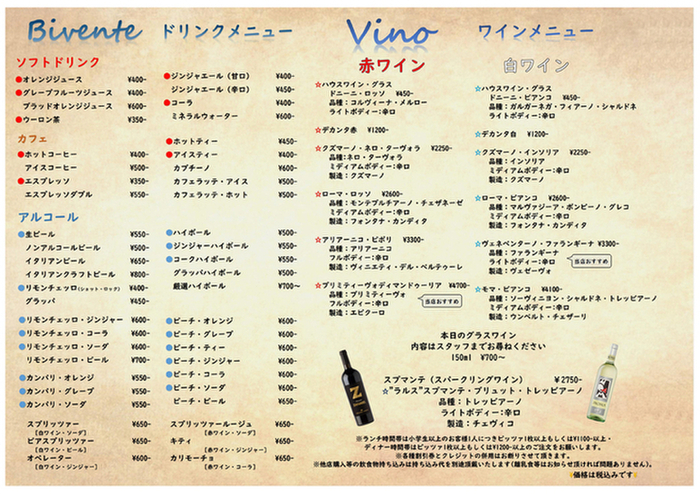 Bivente ドリンクメニュー
ソフトドリンク
●オレンジジュース ¥400-
●グレープフルーツジュース ¥400-
ブラッドオレンジジュース ¥600-
●ウーロン茶 ¥350-
●ジンジャエール（甘口） ¥400-
ジンジャエール（辛口） ¥450-
●コーラ ¥400-
ミネラルウォーター ¥600-
カフェ
●ホットコーヒー ¥400-
アイスコーヒー ¥500-
●エスプレッソ ¥350-
エスプレッソダブル ¥550-
●ホットティー ¥450-
●アイスティー ¥400-
カプチーノ ¥600-
カフェラッテ・アイス ¥500-
カフェラッテ・ホット ¥500-
アルコール
●生ビール ¥550-
ノンアルコールビール ¥500-
イタリアンビール ¥650-
イタリアンクラフトビール ¥800-
●リモンチェッロ（ショット・ロック） ¥400-
グラッパ ¥450-
●ハイボール ¥500-
●ジンジャーハイボール ¥550-
●コークハイボール ¥550-
グラッパハイボール ¥550-
厳選ハイボール ¥700～
●リモンチェッロ・ジンジャー ¥600-
●リモンチェッロ・コーラ ¥600-
●リモンチェッロ・ソーダ ¥600-
リモンチェッロ・ビール ¥700-
●カンパリ・オレンジ ¥550-
●カンパリ・グレープ ¥550-
●カンパリ・ソーダ ¥550-
●ピーチ・オレンジ ¥600-
●ピーチ・グレープ ¥600-
●ピーチ・ティー ¥600-
●ピーチ・ジンジャー ¥600-
●ピーチ・コーラ ¥600-
●ピーチ・ソーダ ¥600-
ピーチ・ビール ¥600-
スプリッツァー ¥650-
[白ワイン・ソーダ]
ビアスプリッツァー ¥650-
[白ワイン・ビール]
オペレーター ¥650-
[白ワイン・ジンジャー]
スプリッツァールージュ ¥650-
[赤ワイン・ソーダ]
キティ ¥650-
[赤ワイン・ジンジャー]
カリモーチョ ¥650-
[赤ワイン・コーラ]
Vino ワインメニュー
赤ワイン
☆ハウスワイン・グラス
ドニーニ・ロッソ ¥450-
品種：コルヴィーナ・メルロー
ライトボディー：辛口
☆デカンタ赤 ¥1200-
☆クズマーノ・ネロ・ターヴォラ ¥2250-
品種：ネロ・ターヴォラ
ミディアムボディー：辛口
製造：クズマーノ
☆ローマ・ロッソ ¥2600-
品種：モンテプルチアーノ・チェザネーゼ
ミディアムボディー：辛口
製造：フォンタナ・カンディタ
☆アリアーニコ・ピポリ ¥3300-
品種：アリアーニコ
フルボディー：辛口
製造：ヴィニエティ・デル・ベルテゥーレ
☆プリミティーヴォディマンドゥーリア ¥4700-
品種：プリミティーヴォ
フルボディー：辛口
製造：エピクーロ
当店おすすめ
白ワイン
☆ハウスワイン・グラス
ドニーニ・ビアンコ ¥450-
品種：ガルガーネガ・フィアーノ・シャルドネ
ライトボディー：辛口
☆デカンタ白 ¥1200-
☆クズマーノ・インソリア ¥2250-
品種：インソリア
ミディアムボディー：辛口
製造：クズマーノ
☆ローマ・ビアンコ ¥2600-
品種：マルヴァッジーア・ボンビーノ・グレコ
ミディアムボディー：辛口
製造：フォンタナ・カンディタ
☆ヴェネベンターノ・ファランギーナ ¥3300-
品種：ファランギーナ
ライトボディー：辛口
製造：ヴェゼーヴォ
当店おすすめ
☆モマ・ビアンコ ¥4100-
品種：ソーヴィニヨン・シャルドネ・トレッビアーノ
ミディアムボディー：辛口
製造：ウンベルト・チェザーリ
本日のグラスワイン
内容はスタッフまでお尋ねください
150ml ¥700～
スプマンテ（スパークリングワイン） ¥2750-
☆"ラルス"スプマンテ・ブリュット・トレッビアーノ
品種：トレッビアーノ
ライトボディー：辛口
製造：チェヴィコ
※ランチ時間帯は小学生以上のお客様1人につきピッツァ1枚以上もしくは¥1100-以上・
ディナー時間帯はピッツァ1枚以上もしくは¥1200-以上のご注文をお願いします。
※各種割引券とクレジットの併用はお断りさせて頂きます。
※他店購入等の飲食物持ち込みは持ち込み代を別途頂戴いたします(離乳食等はお知らせ頂ければ問題ありません)。
☆価格は税込みです☆